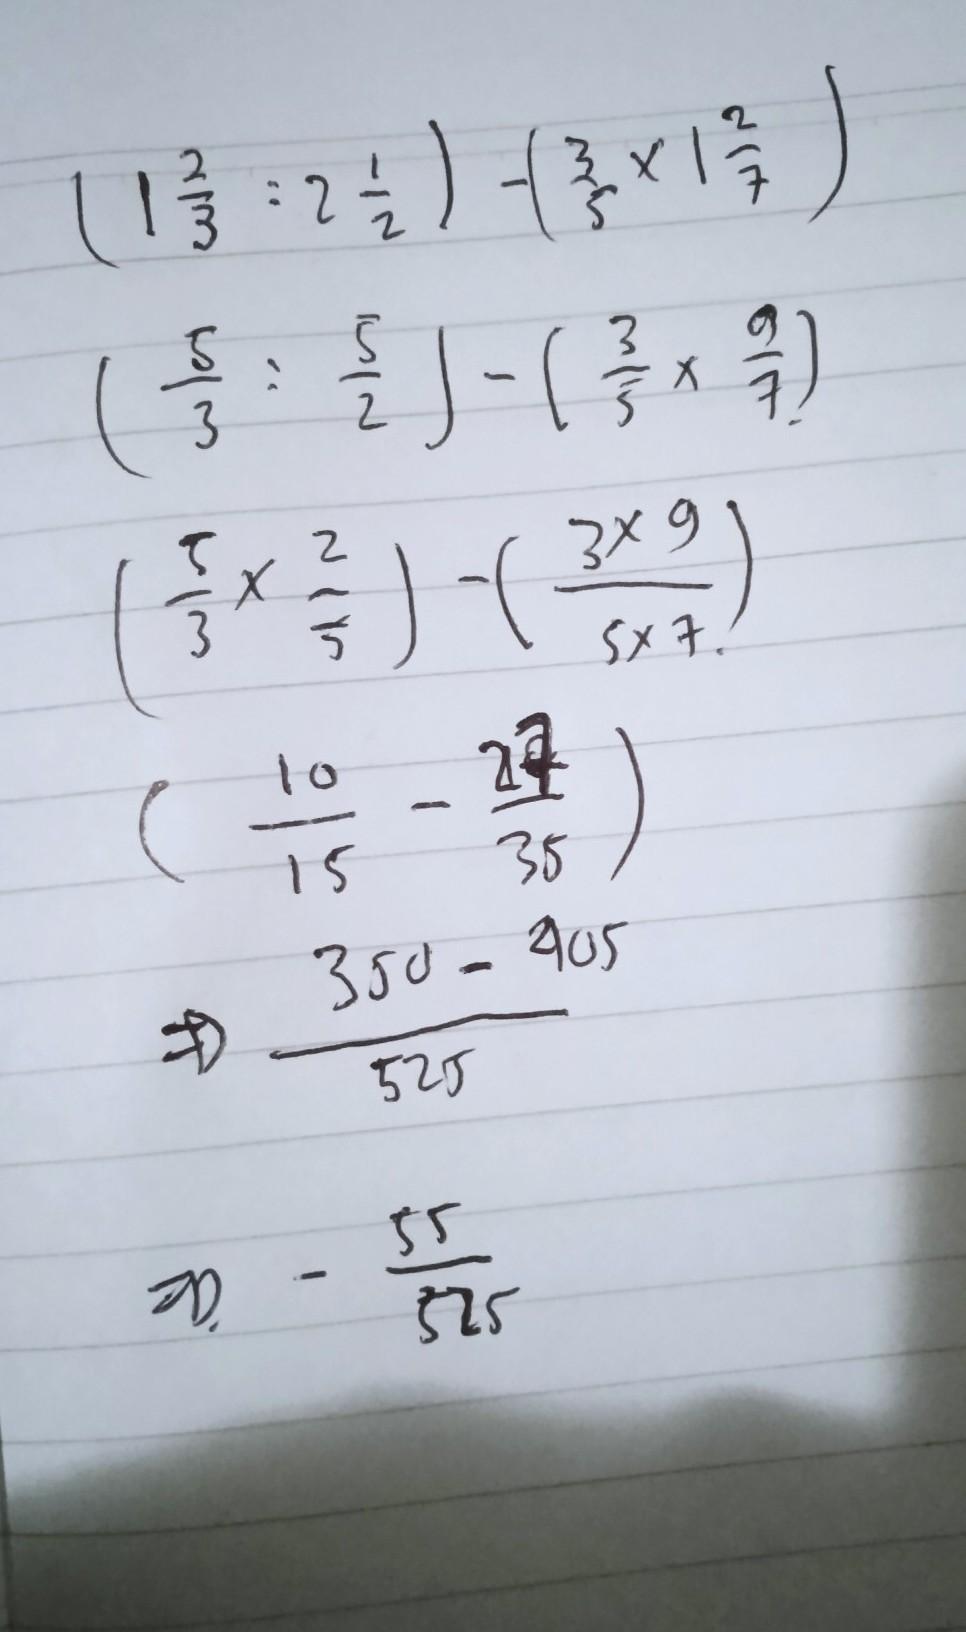 (1 2/3 : 2 1/2) - (3/5 x 1 2/7)
(5/3 : 5/2) - (3/5 x 9/7)
(5/3 x 2/5) - (3x9 / 5x7)
(10/15 - 27/35)
⇒ 350 - 405 / 525
⇒ - 55/525